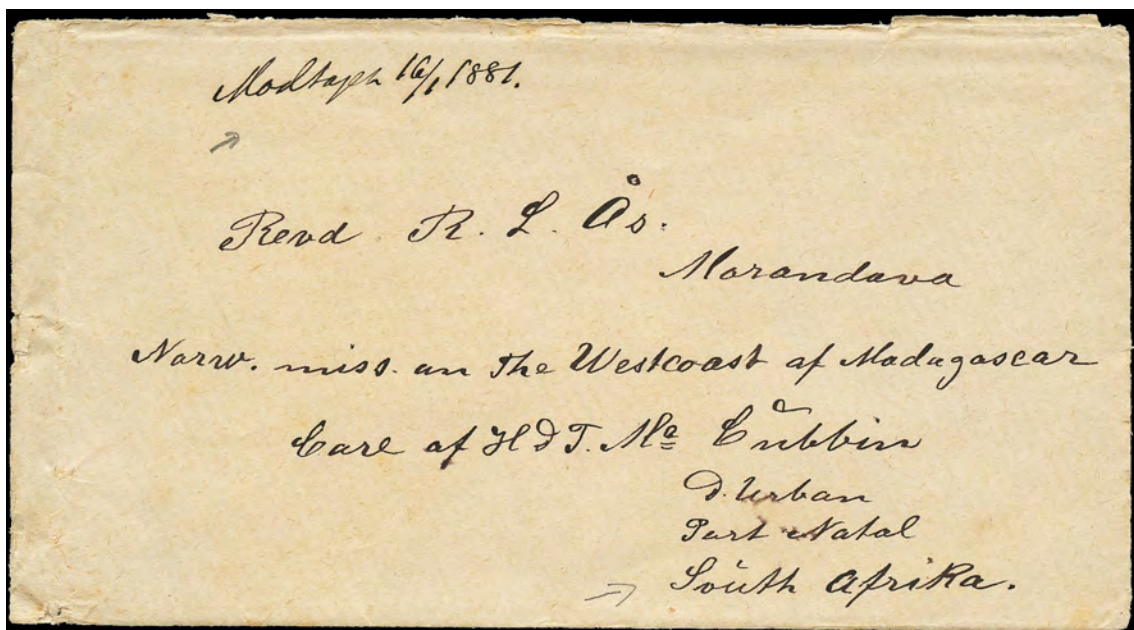 Modtaget 16/1 1881.
Revd. R. L. Ås.
Morandava
Norw. miss. on the Westcoast of Madagascar
Care of H & T. Mc Cubbin
D. Urban
Port Natal
South Afrika.